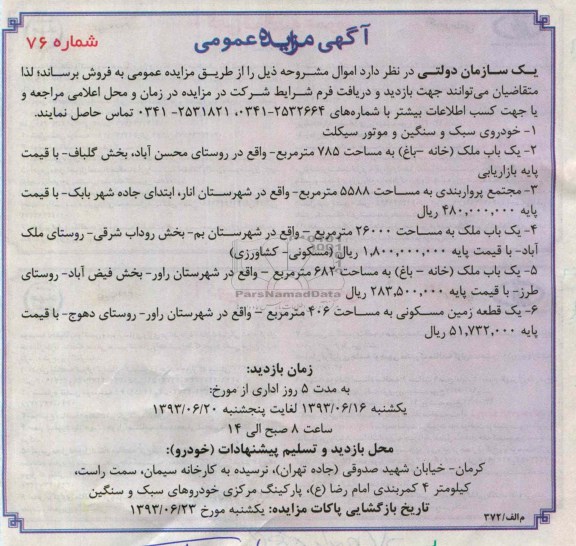 آگهی مزایده عمومی
شماره ۷۶
یک سازمان دولتی در نظر دارد اموال مشروحه ذیل را از طریق مزایده عمومی به فروش برساند؛ لذا
متقاضیان می‌توانند جهت بازدید و دریافت فرم شرایط شرکت در مزایده در زمان و محل اعلامی مراجعه و
یا جهت کسب اطلاعات بیشتر با شماره‌های ۲۵۳۲۶۶۴-۰۳۴۱، ۲۵۳۱۸۲۱- ۰۳۴۱ تماس حاصل نمایند.
۱- خودروی سبک و سنگین و موتور سیکلت
۲- یک باب ملک (خانه –باغ) به مساحت ۷۸۵ مترمربع- واقع در روستای محسن آباد، بخش گلباف- با قیمت
پایه بازاریابی
۳-مجتمع پرواربندی به مساحت ۵۵۸۸ مترمربع- واقع در شهرستان انار، ابتدای جاده شهر بابک- با قیمت
پایه ۴۸۰,۰۰۰,۰۰۰ ریال
۴- یک باب ملک به مساحت ۲۶۰۰۰ مترمربع – واقع در شهرستان بم- بخش روداب شرقی- روستای ملک
آباد- با قیمت پایه ۱,۸۰۰,۰۰۰,۰۰۰ ریال (مسکونی- کشاورزی)
۵- یک باب ملک (خانه – باغ) به مساحت ۶۸۲ مترمربع – واقع در شهرستان راور- بخش فیض آباد- روستای
طرز- با قیمت پایه ۲۸۳,۵۰۰,۰۰۰ ریال
ParsNamadData
۶- یک قطعه زمین مسکونی به مساحت ۴۰۶ مترمربع – واقع در شهرستان راور- روستای دهوج- با قیمت
پایه ۵۱,۷۳۲,۰۰۰ ریال
زمان بازدید:
به مدت ۵ روز اداری از مورخ:
یکشنبه ۱۳۹۳/۰۶/۱۶ لغایت پنجشنبه ۱۳۹۳/۰۶/۲۰
ساعت ۸ صبح الی ۱۴
محل بازدید و تسلیم پیشنهادات (خودرو):
کرمان- خیابان شهید صدوقی (جاده تهران)، نرسیده به کارخانه سیمان، سمت راست،
کیلومتر ۴ کمربندی امام رضا (ع)، پارکینگ مرکزی خودروهای سبک و سنگین
تاریخ بازگشایی پاکات مزایده: یکشنبه مورخ ۱۳۹۳/۰۶/۲۳
م‌الف/۳۷۲